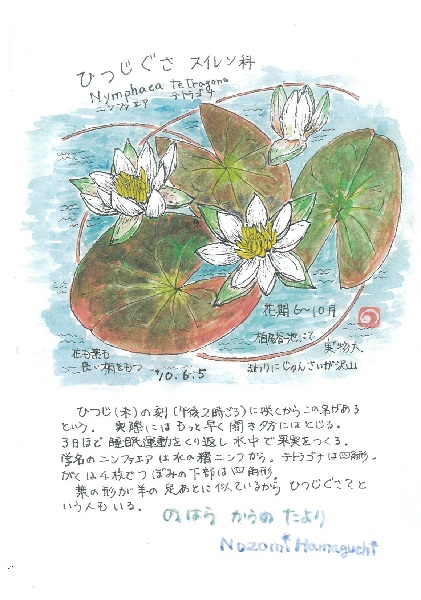 ひつじぐさ スイレン科
Nymphaea tetragona
ニンファエア テトラゴナ
花期 6〜10月
柏尾谷池にて
実物大
まわりにじゅんさいが沢山
花も葉も
長い柄をもつ
'10.6.5
ひつじ(未)の刻(午後2時ごろ)に咲くからこの名がある
という。 実際にはもっと早く開き夕方にはとじる。
3日ほど睡眠運動をくり返し水中で果実をつくる。
学名のニンファエアは水の精ニンフから。テトラゴナは四角形。
がくは4枚でつぼみの下部は四角形。
葉の形が羊の足あとに似ているからひつじぐさてと
いう人もいる。
のはら からの たより
Nozomi Hamaguchi